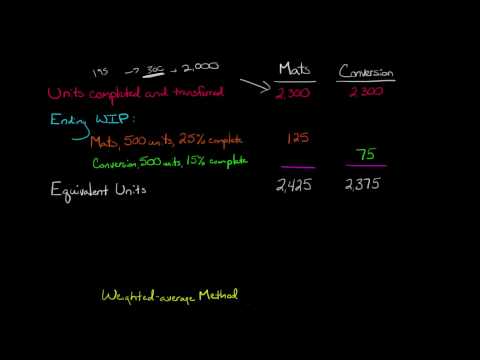 195 → 300 + 2,000
Mats Conversion
Units completed and transferred 2300 2300
Ending WIP:
Mats, 500 units, 25% complete 125
Conversion, 500 units, 15% complete 75
Equivalent Units 2,425 2,375
Weighted-average Method